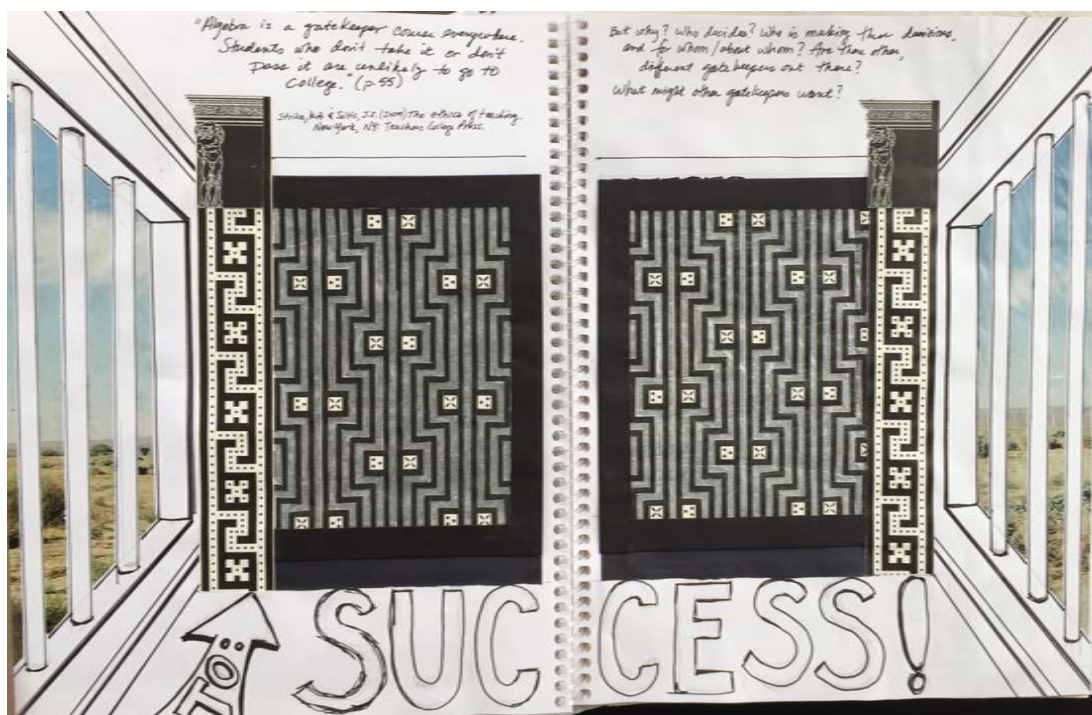 "Algebra is a gatekeeper course everywhere.
Students who don't take it or don't
pass it are unlikely to go to
College." (p. 55)
Strike, & Soltis, J.S. (2009) The ethics of teaching.
New York, NY: Teachers College Press.
But why? Who decides? Who is making these decisions,
and for whom/about whom? Are there other,
different gatekeepers out there?
What might other gatekeepers want?
TO:
SUCCESS!